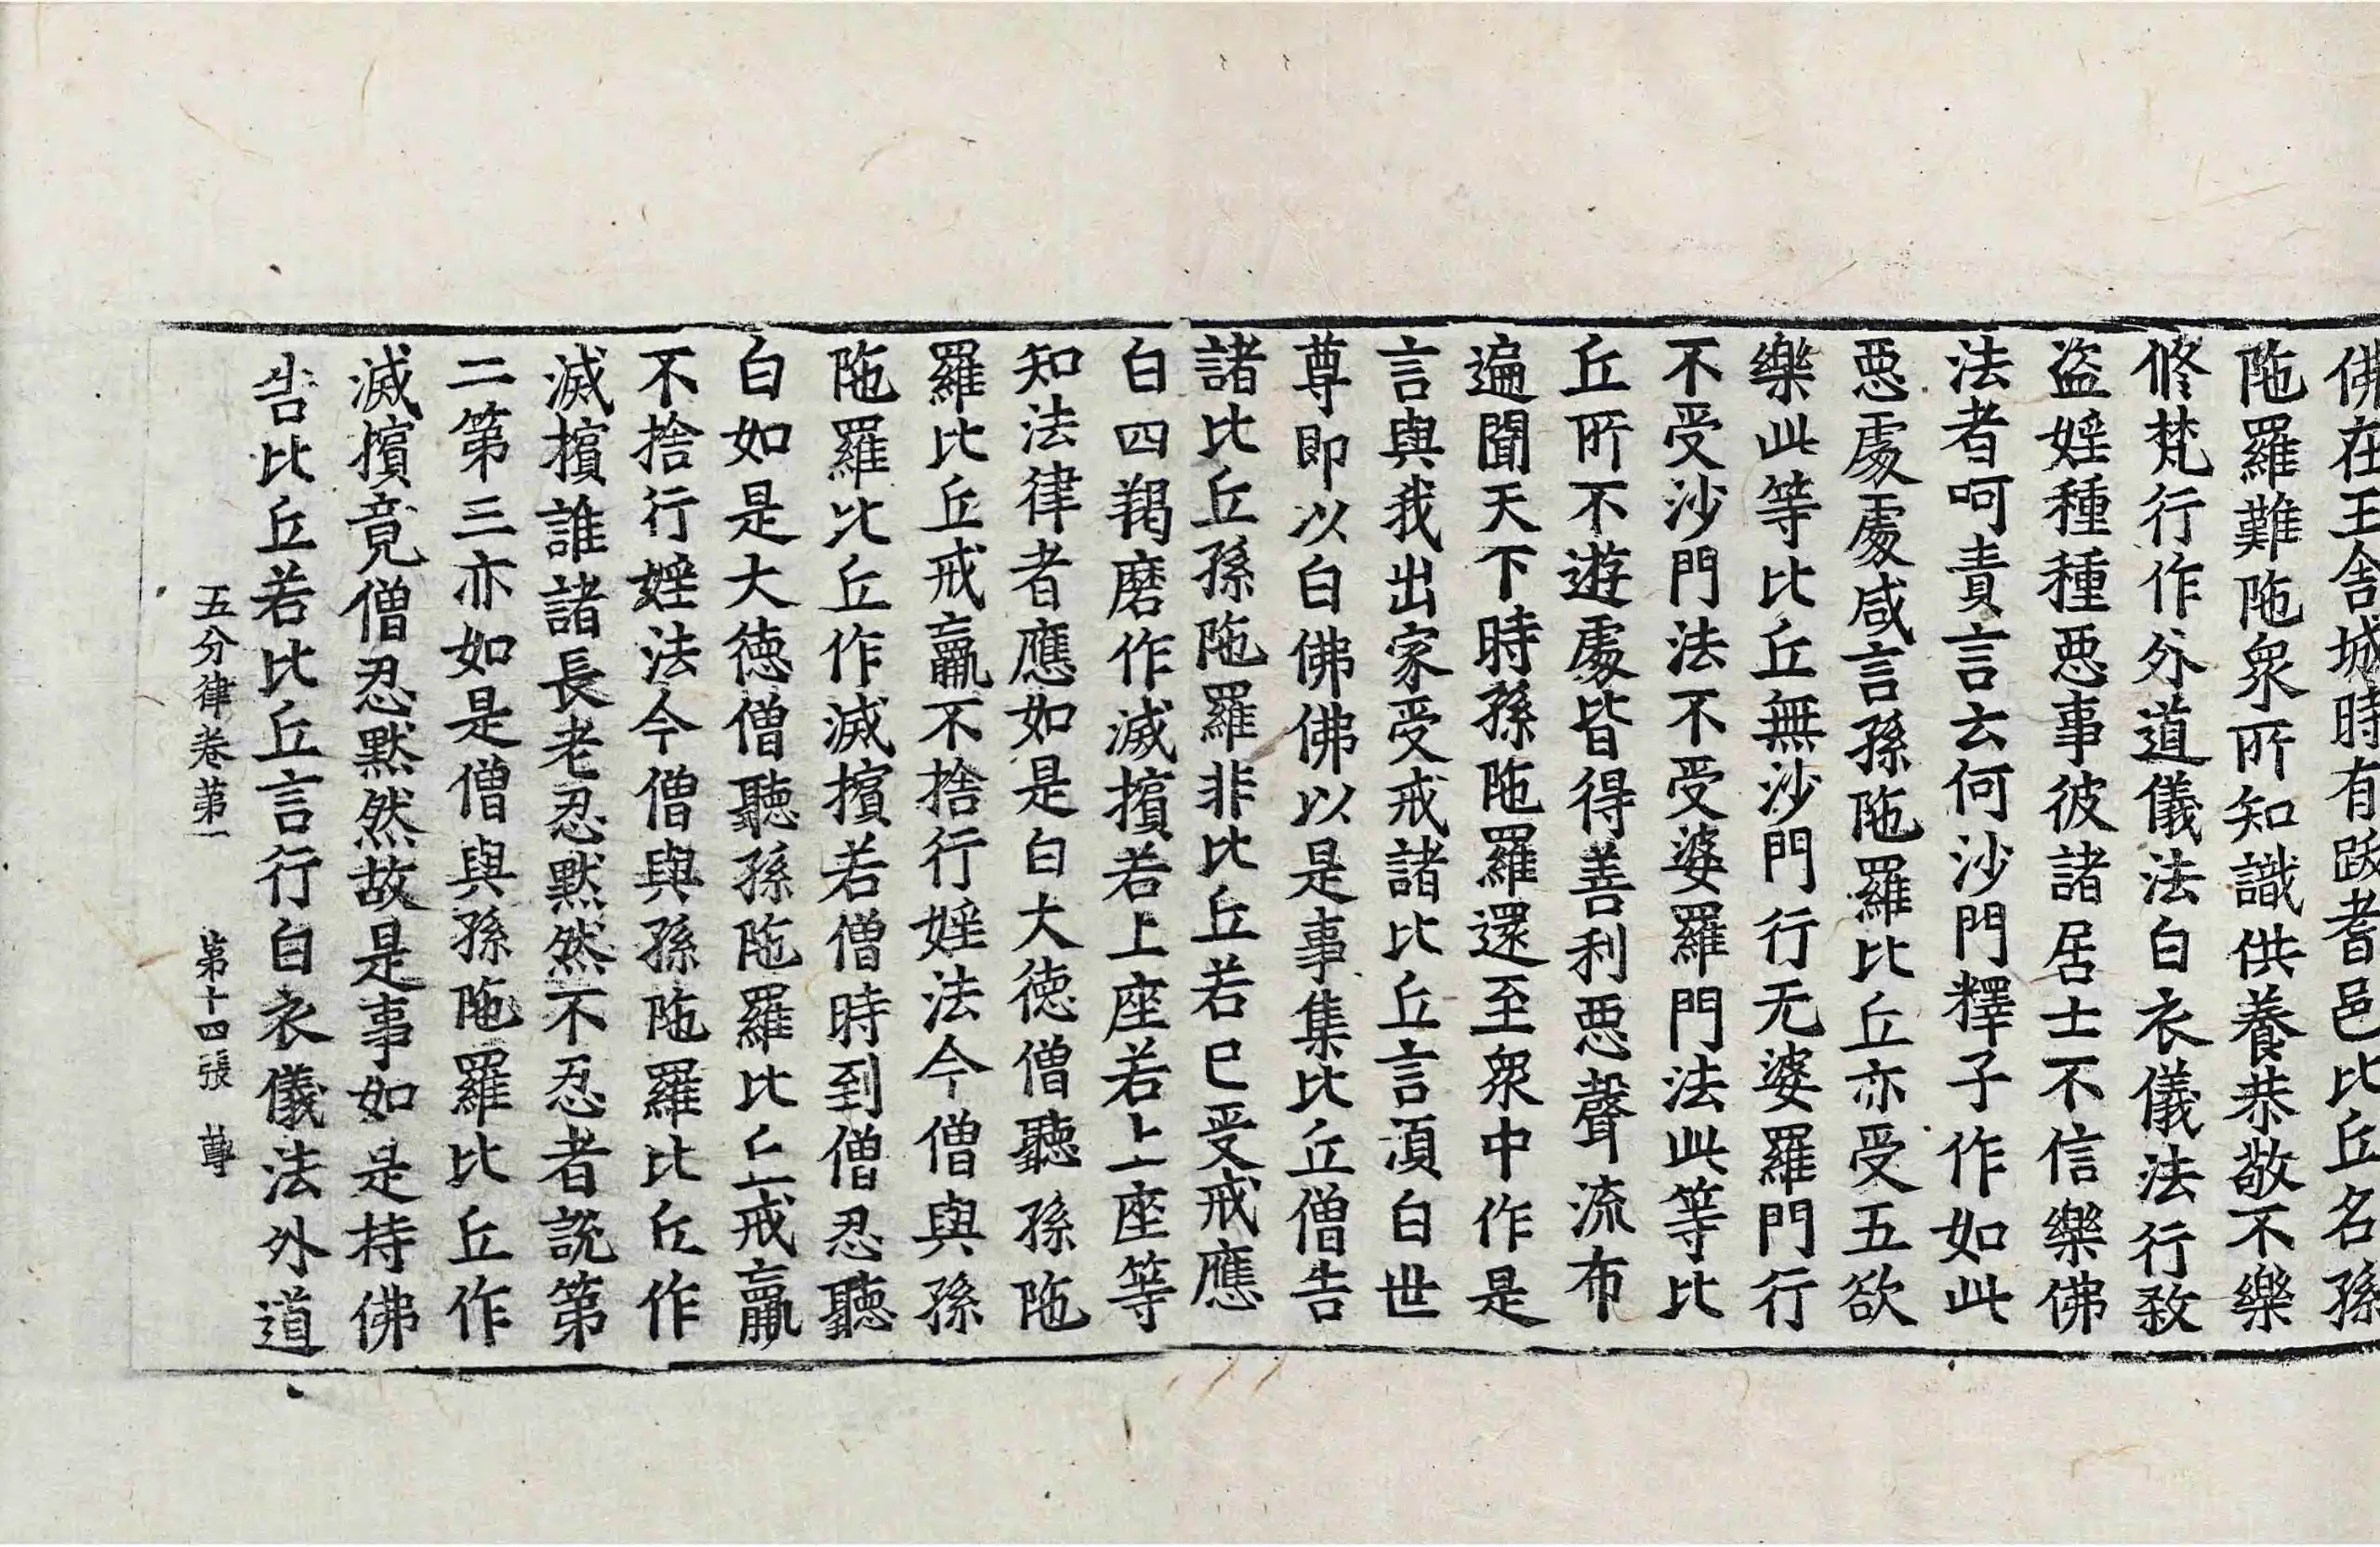 佛在王舍城時有跋耆邑比丘名孫
陁羅難陁衆所知識供養恭敬不樂
修梵行作外道儀法白衣儀法行㪅
盜婬種種惡事彼諸居士不信樂佛
法者呵責言云何沙門釋子作如此
惡處處咸言孫陁羅比丘亦受五欲
樂此等比丘無沙門行无婆羅門行
不受沙門法不受婆羅門法此等比
丘所不遊處皆得善利惡聲流布
遍聞天下時孫陁羅還至衆中作是
言與我出家受戒諸比丘言湏白世
尊即以白佛佛以是事集比丘僧告
諸比丘孫陁羅非比丘若已受戒應
白四羯磨作滅擯若上座若上座等
知法律者應如是白大德僧聽孫陁
羅比丘戒羸不捨行婬法今僧與孫
陁羅比丘作滅擯若僧時到僧忍聽
白如是大德僧聽孫陁羅比丘戒羸
不捨行婬法今僧與孫陁羅比丘作
滅擯誰諸長老忍默然不忍者說第
二第三亦如是僧與孫陁羅比丘作
滅擯竟僧忍默然故是事如是持佛
告比丘若比丘言行白衣儀法外道
五分律卷第一 第十四張 尊